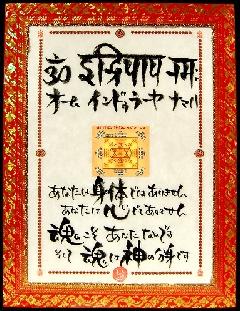 ॐ इंद्रियाय नमः
オーム インドゥラーヤ ナマハ
あなたは身体ではありません
あなたは心でもありません
魂こそあなたなのです
そして魂は神の分身です